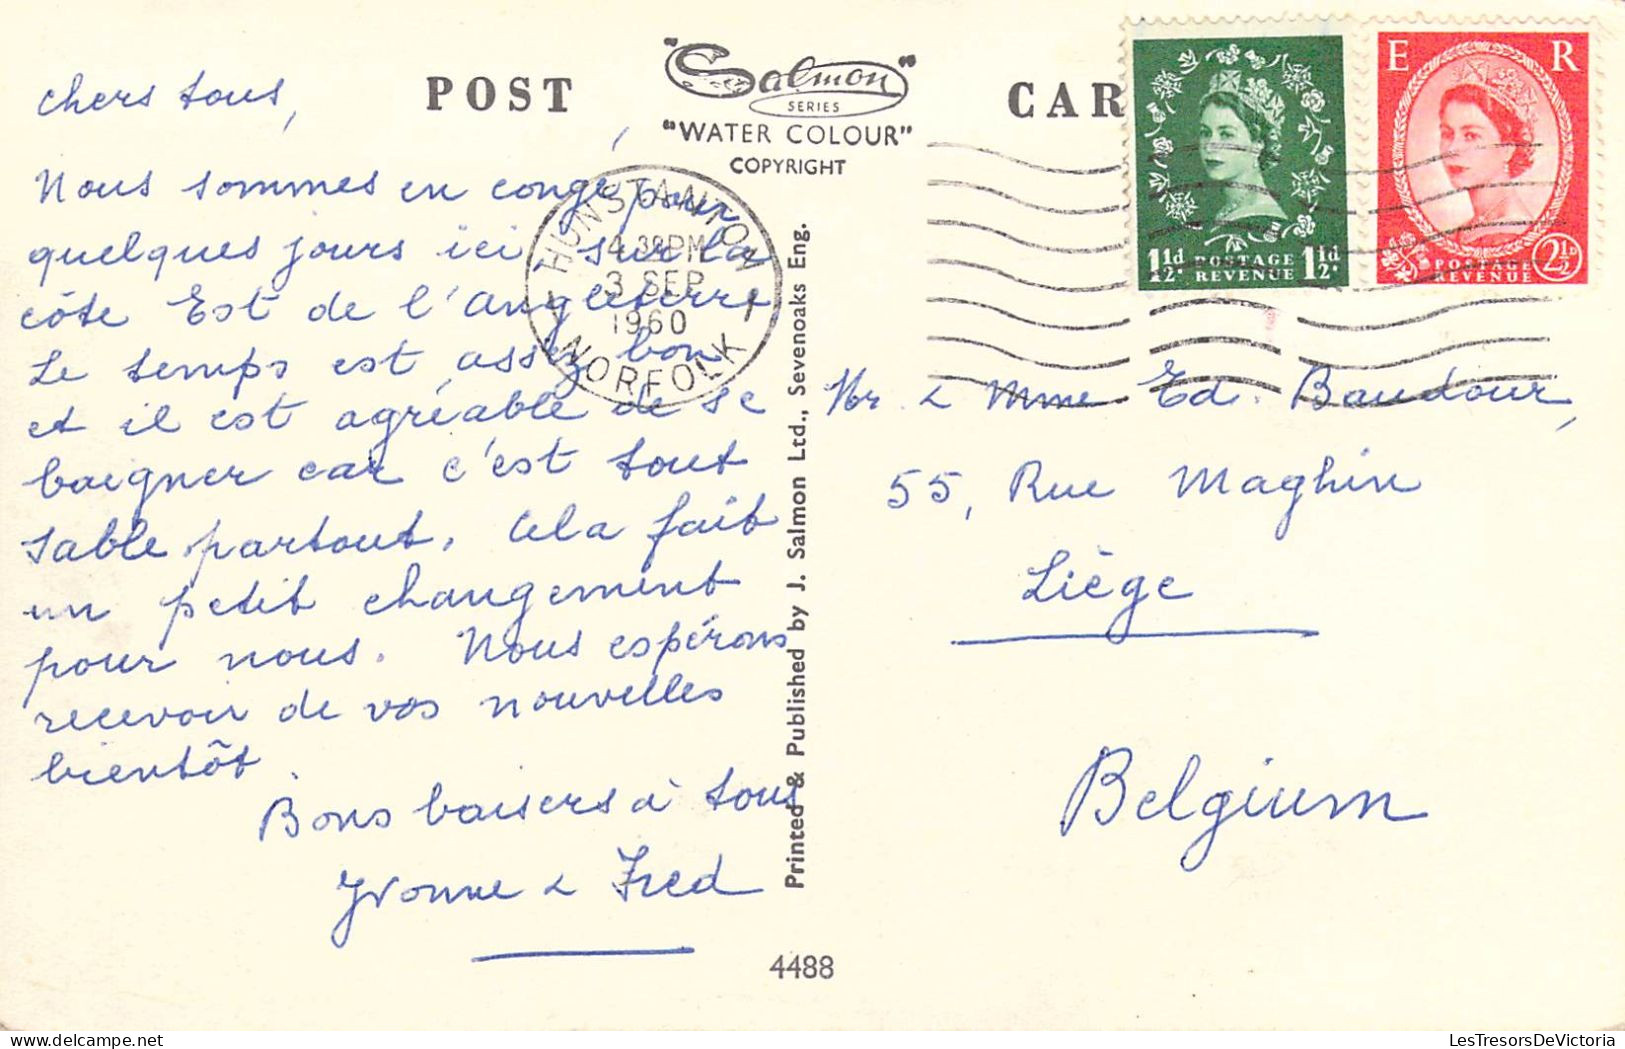 POST CAR
"Salmon"
SERIES
"WATER COLOUR"
COPYRIGHT
E R
1½d. POSTAGE REVENUE 1½d.
POSTAGE REVENUE 2½d
HUNSTANTON
PM
3 SEP
1960
NORFOLK
chers tous,
Nous sommes en congé, pour
quelques jours ici, sur la
côte Est de l'angleterre
Le temps est assez bon
et il est agréable de se
baigner car c'est tout
sable partout. Cela fait
un petit changement
pour nous. Nous espérons
recevoir de vos nouvelles
bientôt.
Bons baisers à tous
Yvonne & Fred
Printed & Published by J. Salmon Ltd., Sevenoaks Eng.
4488
Mr. & Mme Ed. Baudour,
55, Rue Maghin
Liège
Belgium
LesTresorsDeVictoria